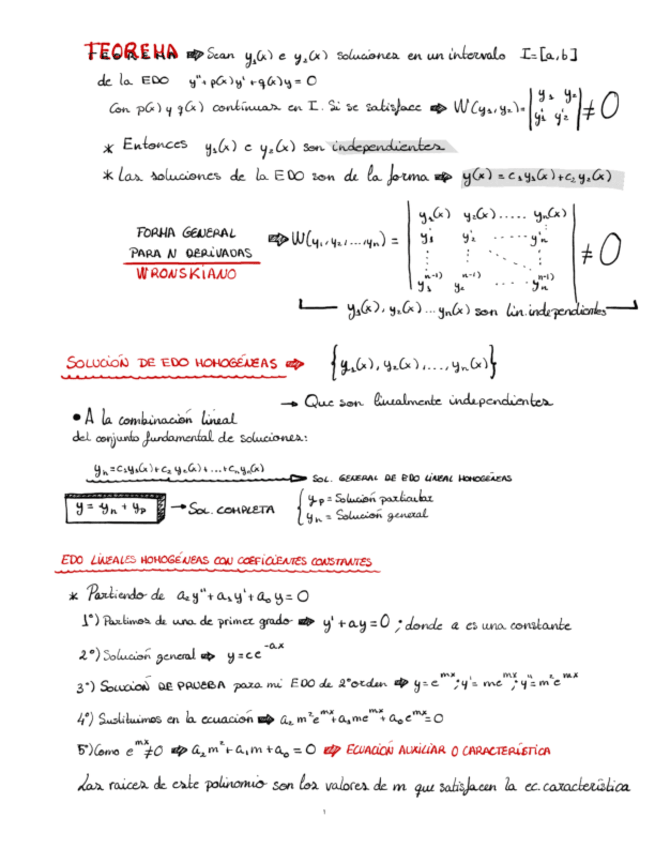 TEOREMA ⇒ Sean y₁(x) e y₂(x) soluciones en un intervalo I=[a,b]
de la EDO y''+p(x)y'+q(x)y=0
Con p(x) y q(x) contínuas en I. Si se satisface ⇒ W(y₁,y₂)=|y₁ y₂; y₁' y₂'| ≠ 0
* Entonces y₁(x) e y₂(x) son independientes
* Las soluciones de la EDO son de la forma ⇒ y(x)=c₁y₁(x)+c₂y₂(x)
FORMA GENERAL
PARA N DERIVADAS
WRONSKIANO
⇒ W(y₁,y₂,...,yₙ) =
y₁(x) y₂(x)..... yₙ(x)
y₁' y₂' ..... y'ₙ
y₁⁽ⁿ⁻¹⁾ y₂⁽ⁿ⁻¹⁾ ... yₙ⁽ⁿ⁻¹⁾
≠ 0
y₁(x), y₂(x)...yₙ(x) son lin.independientes
SOLUCIÓN DE EDO HOMOGÉNEAS ⇒ {y₁(x), y₂(x),..., yₙ(x)}
→ Que son linealmente independientes
• A la combinación lineal
del conjunto fundamental de soluciones:
yₕ=c₁y₁(x)+c₂y₂(x)+...+cₙyₙ(x)
SOL. GENERAL DE EDO LÍNEAL HOMOGÉNEAS
y = yₕ + yₚ → SOL. COMPLETA
yₚ = Solución particular
yₕ = Solución general
EDO LÍNEALES HOMOGÉNEAS CON COEFICIENTES CONSTANTES
* Partiendo de a₂y''+a₁y'+a₀y=0
1º) Partimos de una de primer grado ⇒ y'+ay=0 ; donde a es una constante
2º) Solución general ⇒ y=ce⁻ᵃˣ
3º) SOLUCIÓN DE PRUEBA para mi EDO de 2ºorden ⇒ y=eᵐˣ; y'=meᵐˣ; y''=m²eᵐˣ
4º) Sustituimos en la ecuación ⇒ a₂m²eᵐˣ+a₁meᵐˣ+a₀eᵐˣ=0
5º) Como eᵐˣ≠0 ⇒ a₂m²+a₁m+a₀=0 ⇒ ECUACIÓN AUXILIAR O CARACTERÍSTICA
Las raices de este polinomio son los valores de m que satisfacen la ec.característica
1